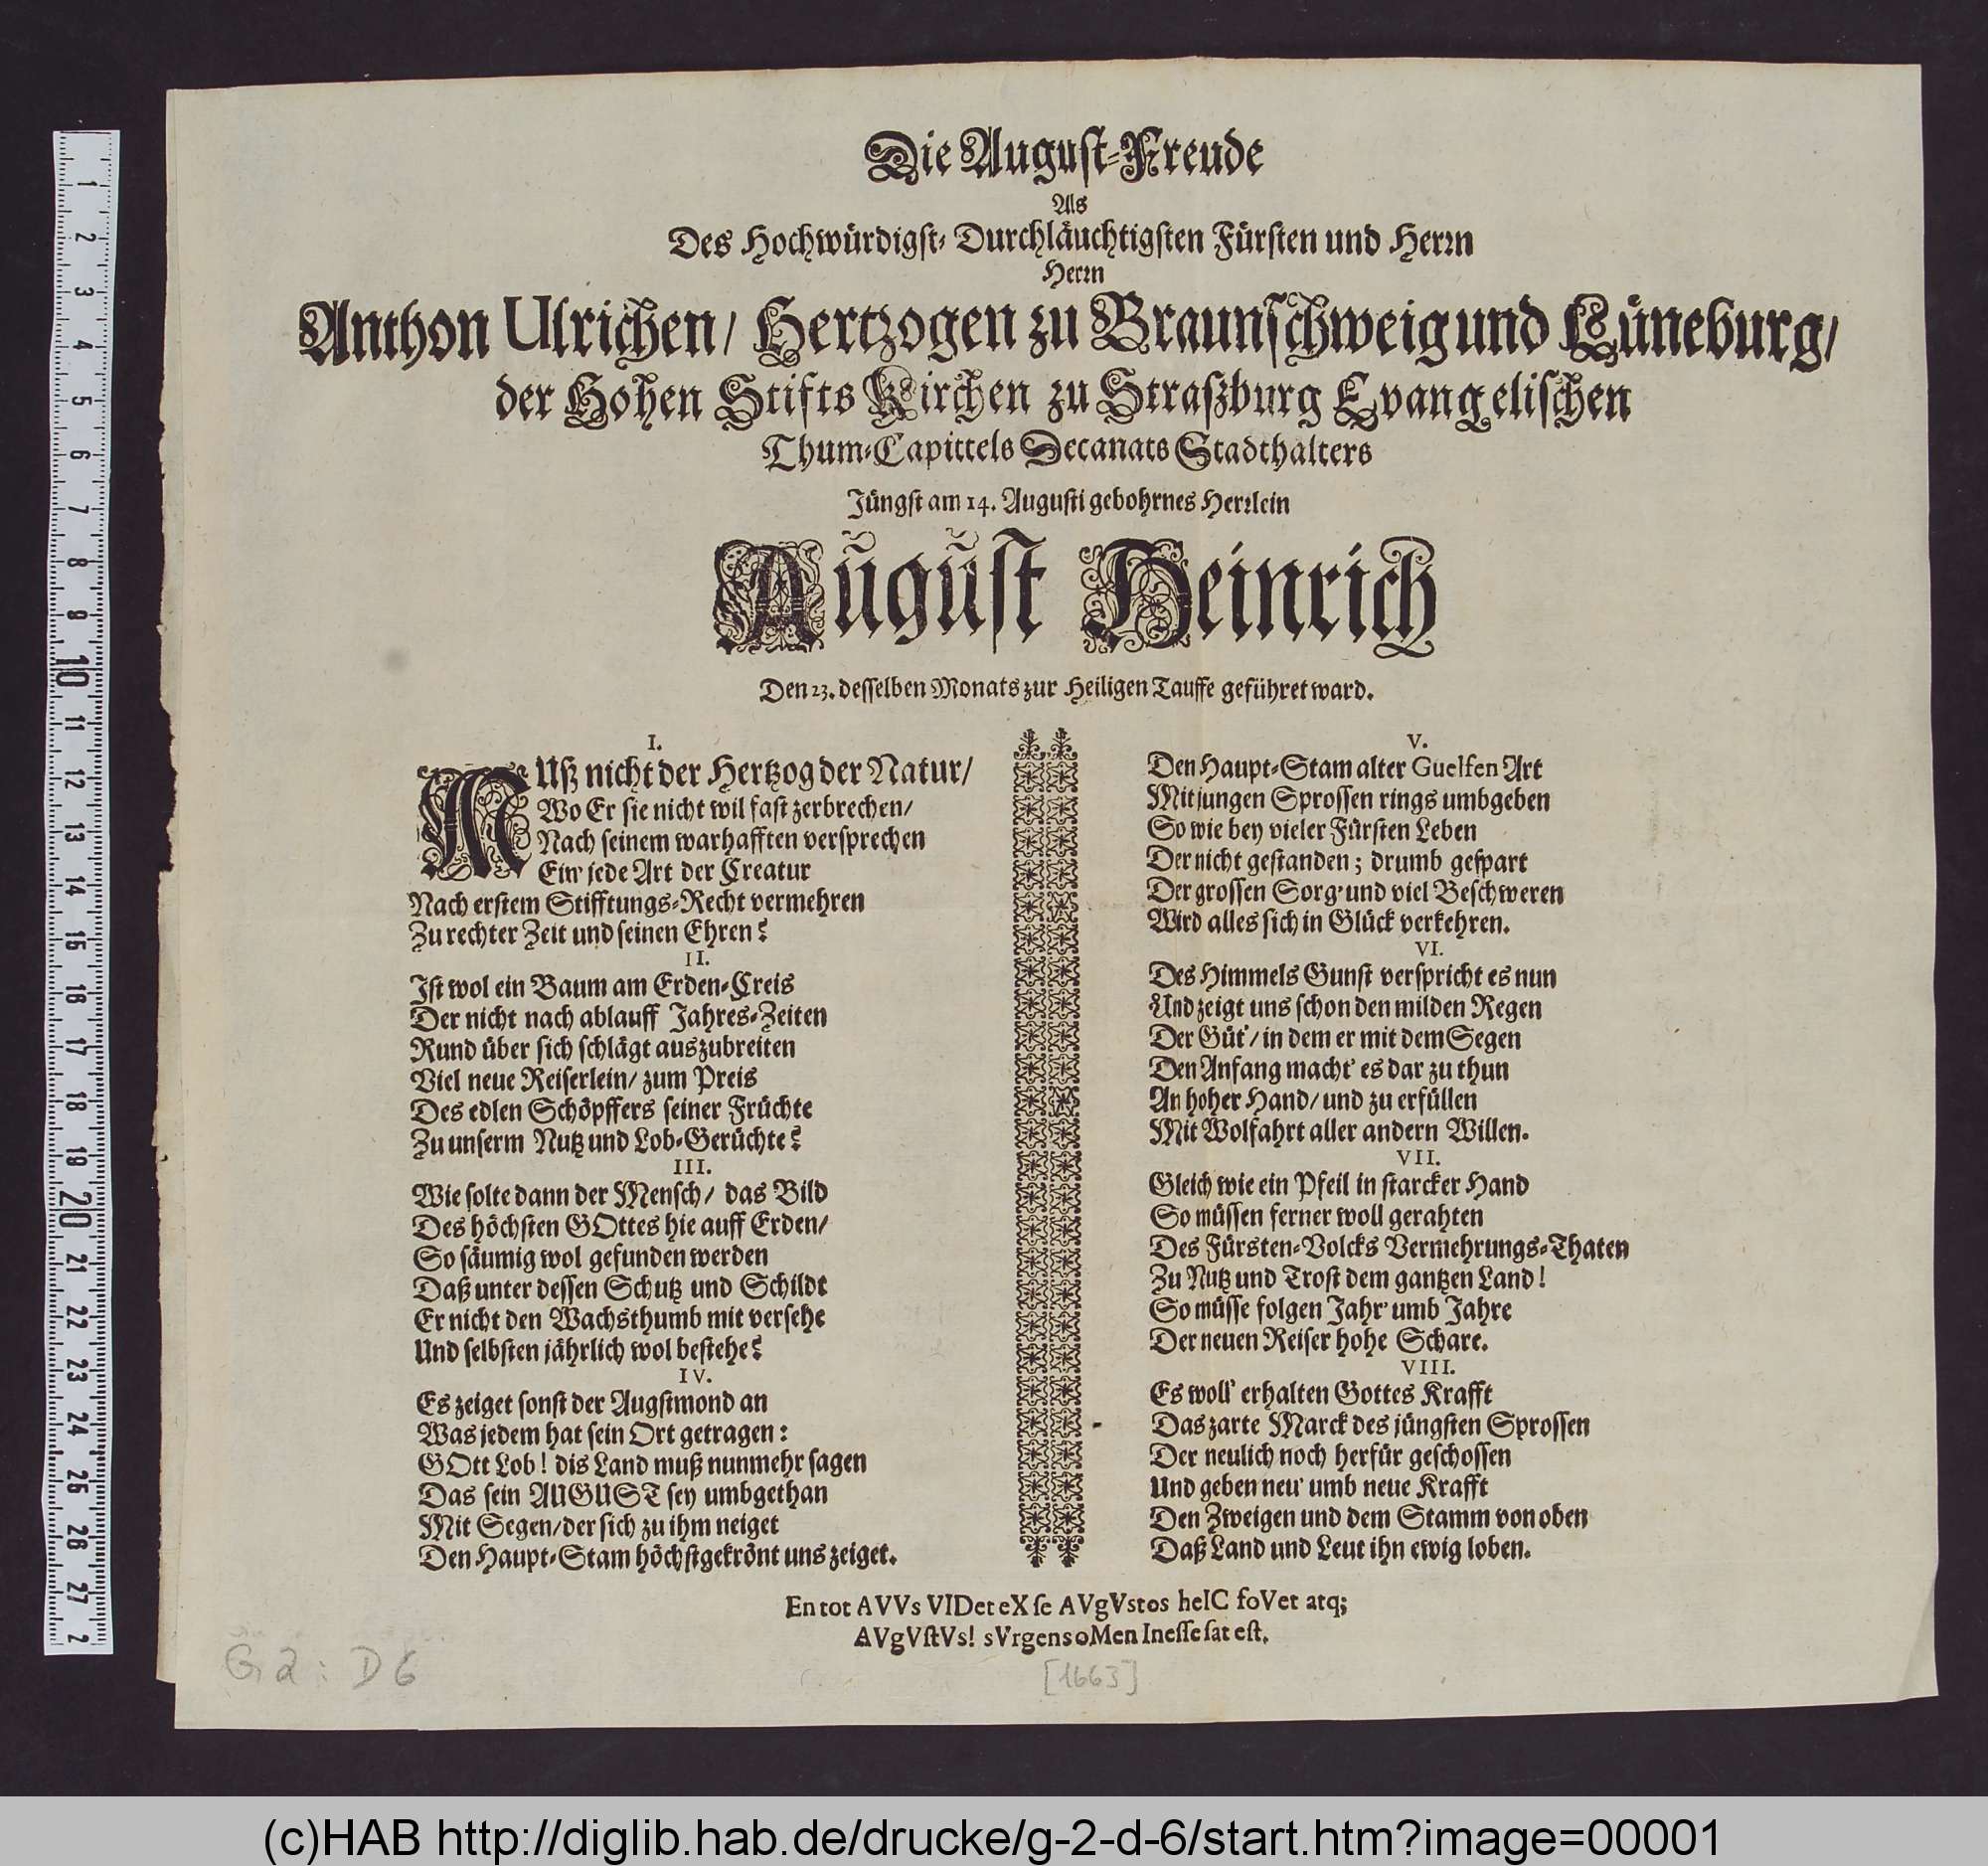 Die Auguſt-Freude
Als
Des Hochwürdigſt- Durchläuchtigſten Fürſten und Herrn
Herrn
Anthon Ulrichen/ Hertzogen zu Braunſchweig und Lüneburg/
der Hohen Stifts Kirchen zu Straßburg Evangeliſchen
Thum-Capittels Decanats Stadthalters
Jüngſt am 14. Auguſti gebohrnes Herrlein
Auguſt Heinrich
Den 23. deſſelben Monats zur Heiligen Tauffe geführet ward.
I.
MUß nicht der Hertzog der Natur/
Wo Er ſie nicht wil faſt zerbrechen/
Nach ſeinem warhafften verſprechen
Ein' jede Art der Creatur
Nach erſtem Stifftungs-Recht vermehren
Zu rechter Zeit und ſeinen Ehren?
II.
Iſt wol ein Baum am Erden-Creis
Der nicht nach ablauff Jahres-Zeiten
Rund über ſich ſchlägt auszubreiten
Viel neue Reiſerlein/ zum Preis
Des edlen Schöpffers ſeiner Früchte
Zu unſerm Nutz und Lob-Gerüchte?
III.
Wie ſolte dann der Menſch/ das Bild
Des höchſten GOttes hie auff Erden/
So ſäumig wol gefunden werden
Daß unter deſſen Schutz und Schildt
Er nicht den Wachsthumb mit verſehe
Und ſelbſten jährlich wol beſtehe?
IV.
Es zeiget ſonſt der Augſtmond an
Was jedem hat ſein Ort getragen:
GOtt Lob! dis Land muß nunmehr ſagen
Das ſein AUGUST ſey umbgethan
Mit Segen/ der ſich zu ihm neiget
Den Haupt-Stam höchſtgekrönt uns zeiget.
V.
Den Haupt-Stam alter Guelfen Art
Mit jungen Sproſſen rings umbgeben
So wie bey vieler Fürſten Leben
Der nicht geſtanden; drumb geſpart
Der groſſen Sorg' und viel Beſchweren
Wird alles ſich in Glück verkehren.
VI.
Des Himmels Gunſt verſpricht es nun
Und zeigt uns ſchon den milden Regen
Der Güt'/ in dem er mit dem Segen
Den Anfang macht' es dar zu thun
An hoher Hand/ und zu erfüllen
Mit Wolfahrt aller andern Willen.
VII.
Gleich wie ein Pfeil in ſtarcker Hand
So müſſen ferner woll gerahten
Des Fürſten-Volcks Vermehrungs-Thaten
Zu Nutz und Troſt dem gantzen Land!
So müſſe folgen Jahr' umb Jahre
Der neuen Reiſer hohe Schare.
VIII.
Es woll' erhalten Gottes Krafft
Das zarte Marck des jüngſten Sproſſen
Der neulich noch herfür geſchoſſen
Und geben neu' umb neue Krafft
Den Zweigen und dem Stamm von oben
Daß Land und Leut ihn ewig loben.
En tot AVVs VIDet eX ſe AVgVstos heIC foVet atq;
AVgVſtVs! sVrgens oMen Ineſſe ſat eſt.
G 2 : D 6
[1663]
1
2
3
4
5
6
7
8
9
10
11
12
13
14
15
16
17
18
19
20
21
22
23
24
25
26
27
2
(c)HAB http://diglib.hab.de/drucke/g-2-d-6/start.htm?image=00001